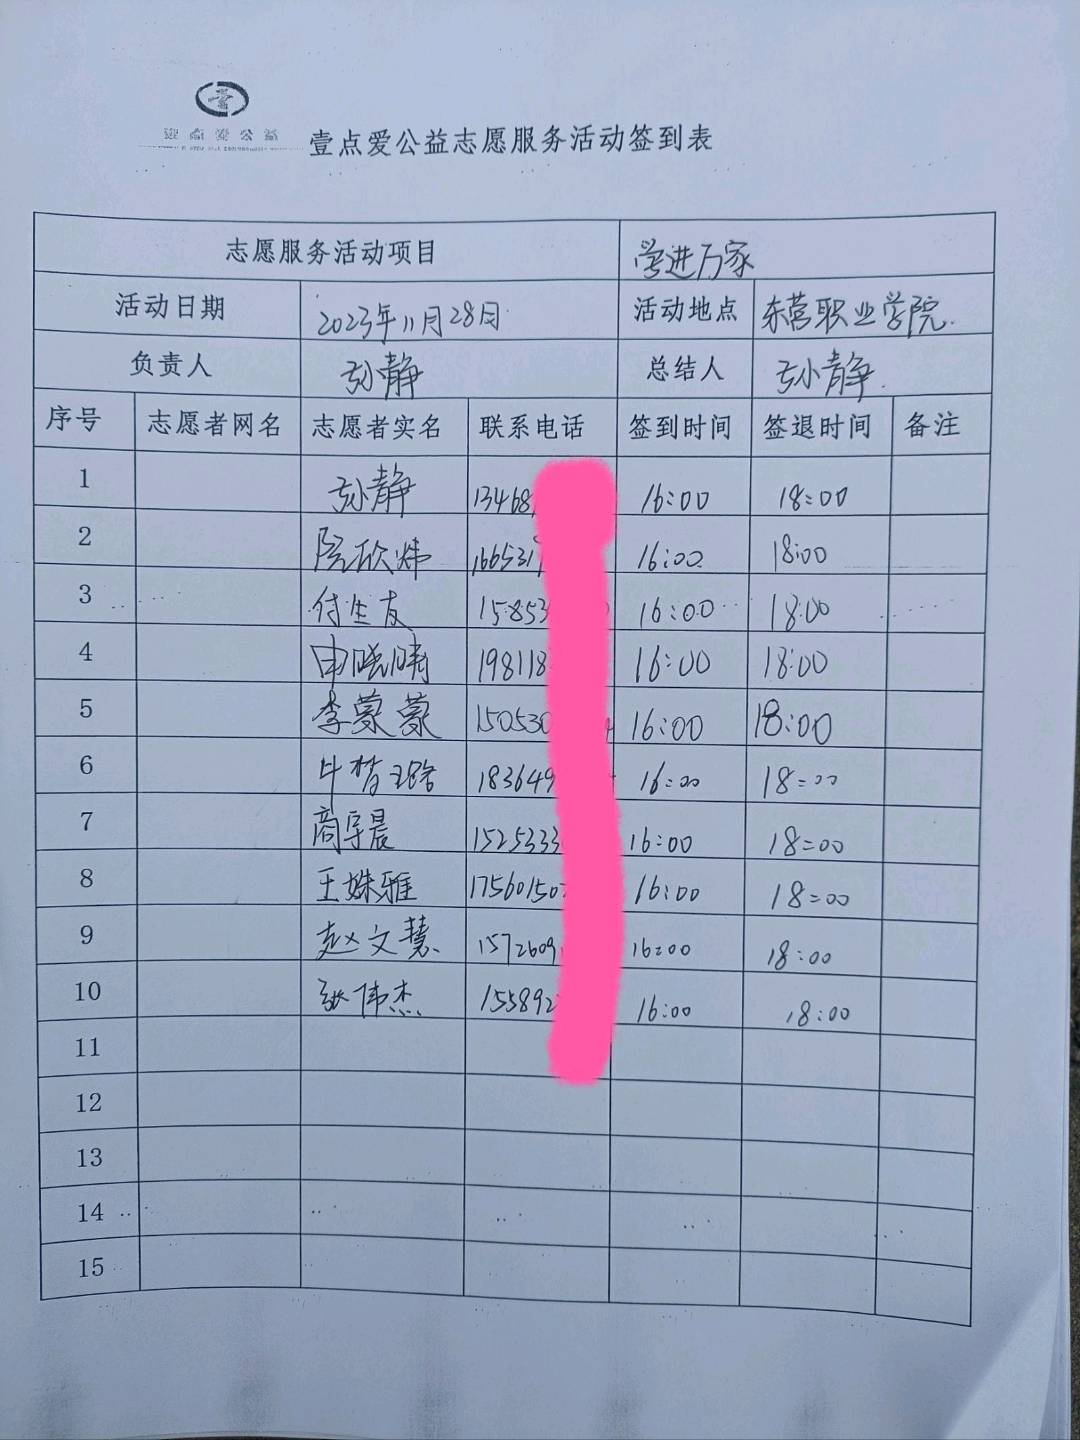 壹点爱公益
壹点爱公益志愿服务活动签到表
志愿服务活动项目 学进万家
活动日期 2023年11月28日 活动地点 东营职业学院
负责人 孙静 总结人 孙静
序号 志愿者网名 志愿者实名 联系电话 签到时间 签退时间 备注
1 孙静 13468 16:00 18:00
2 欣炜 166531 16:00 18:00
3 付生友 15853 16:00 18:00
4 申晓晴 198118 16:00 18:00
5 李蒙蒙 150530 16:00 18:00
6 牛梦璐 183649 16:00 18:00
7 商宇晨 1525333 16:00 18:00
8 王姝雅 17560150 16:00 18:00
9 赵文慧 1572609 16:00 18:00
10 张伟杰 155892 16:00 18:00
11
12
13
14
15